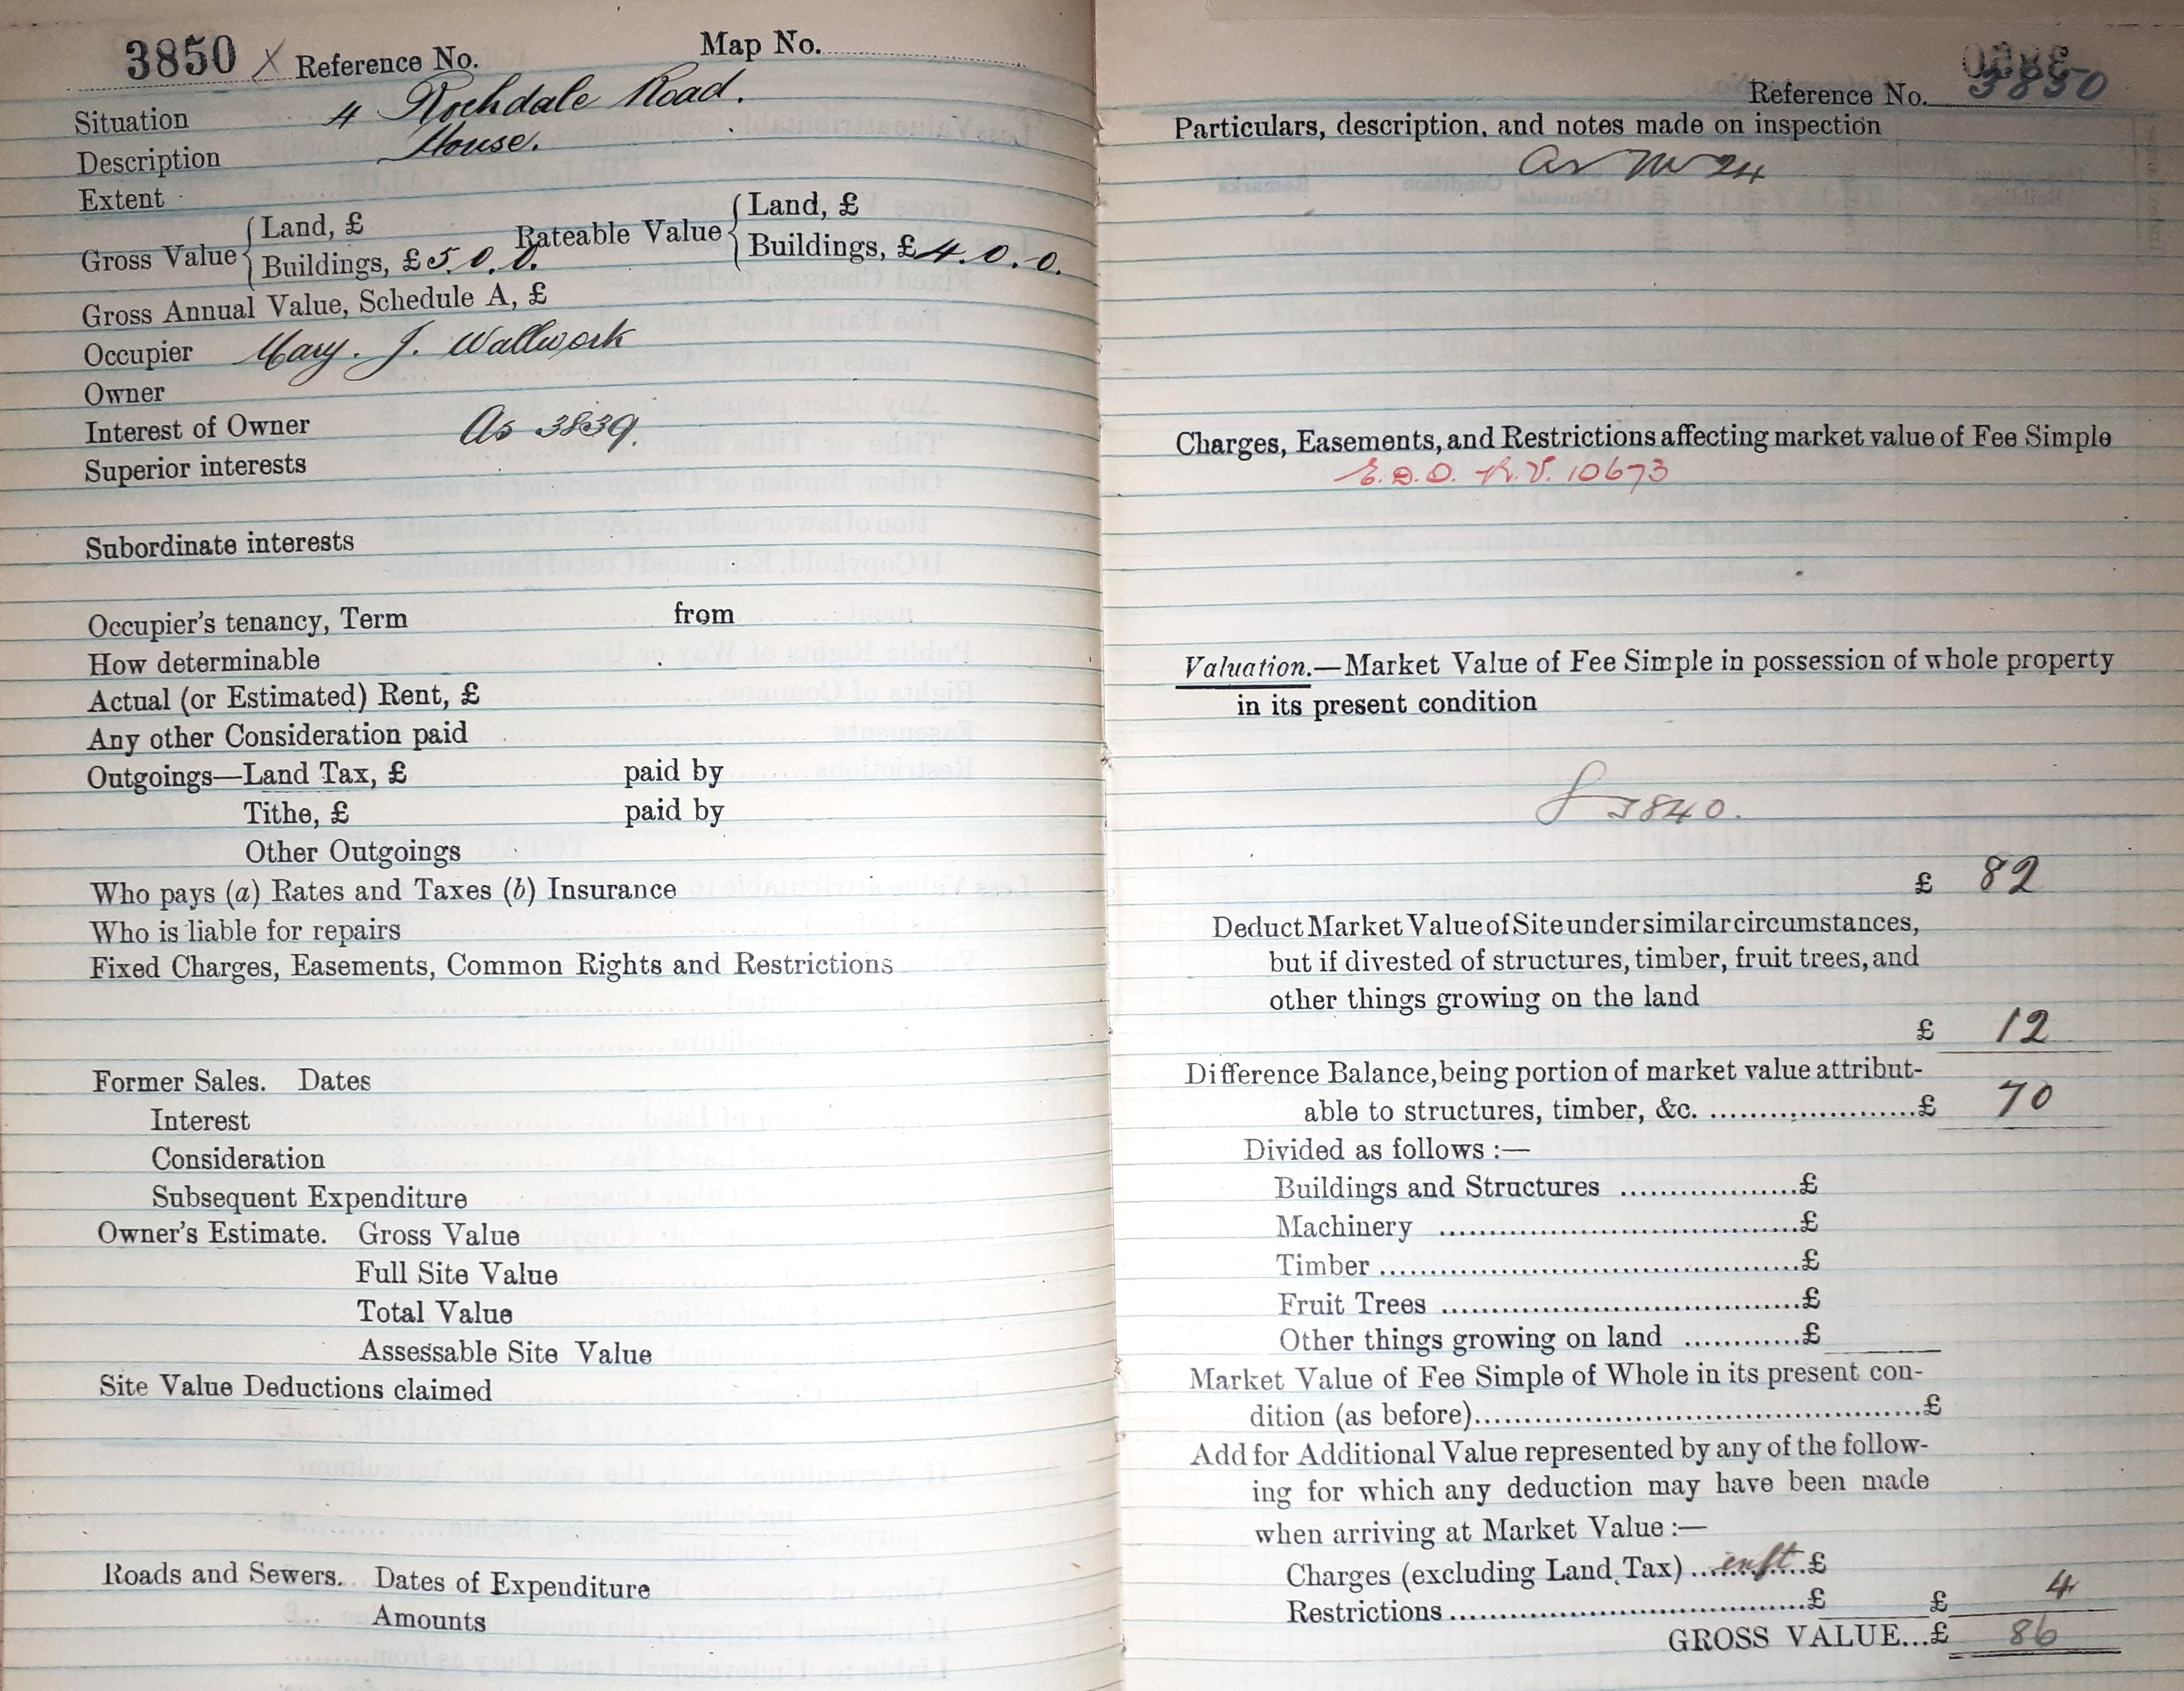 3850 X Reference No. Map No.
Situation 4 Rochdale Road.
Description House.
Extent
Gross Value { Land, £ Rateable Value { Land, £
Buildings, £ 5. 0. 0. Buildings, £ 4. 0. 0.
Gross Annual Value, Schedule A, £
Occupier Mary. J. Wallwork
Owner
Interest of Owner As 3839.
Superior interests
Subordinate interests
Occupier's tenancy, Term from
How determinable
Actual (or Estimated) Rent, £
Any other Consideration paid
Outgoings—Land Tax, £ paid by
Tithe, £ paid by
Other Outgoings
Who pays (a) Rates and Taxes (b) Insurance
Who is liable for repairs
Fixed Charges, Easements, Common Rights and Restrictions
Former Sales. Dates
Interest
Consideration
Subsequent Expenditure
Owner's Estimate. Gross Value
Full Site Value
Total Value
Assessable Site Value
Site Value Deductions claimed
Roads and Sewers. Dates of Expenditure
Amounts
Reference No. 3850
Particulars, description, and notes made on inspection
as 24
Charges, Easements, and Restrictions affecting market value of Fee Simple
E.D.O. R.V. 10673
Valuation.—Market Value of Fee Simple in possession of whole property
in its present condition
3840.
£ 82
Deduct Market Value of Site under similar circumstances,
but if divested of structures, timber, fruit trees, and
other things growing on the land
£ 12
Difference Balance, being portion of market value attribut-
able to structures, timber, &c. ........£ 70
Divided as follows :—
Buildings and Structures ........£
Machinery ........£
Timber ........£
Fruit Trees ........£
Other things growing on land ........£
Market Value of Fee Simple of Whole in its present con-
dition (as before)........£
Add for Additional Value represented by any of the follow-
ing for which any deduction may have been made
when arriving at Market Value :—
Charges (excluding Land Tax) ........£
Restrictions ........£ £ 4
GROSS VALUE...£ 86